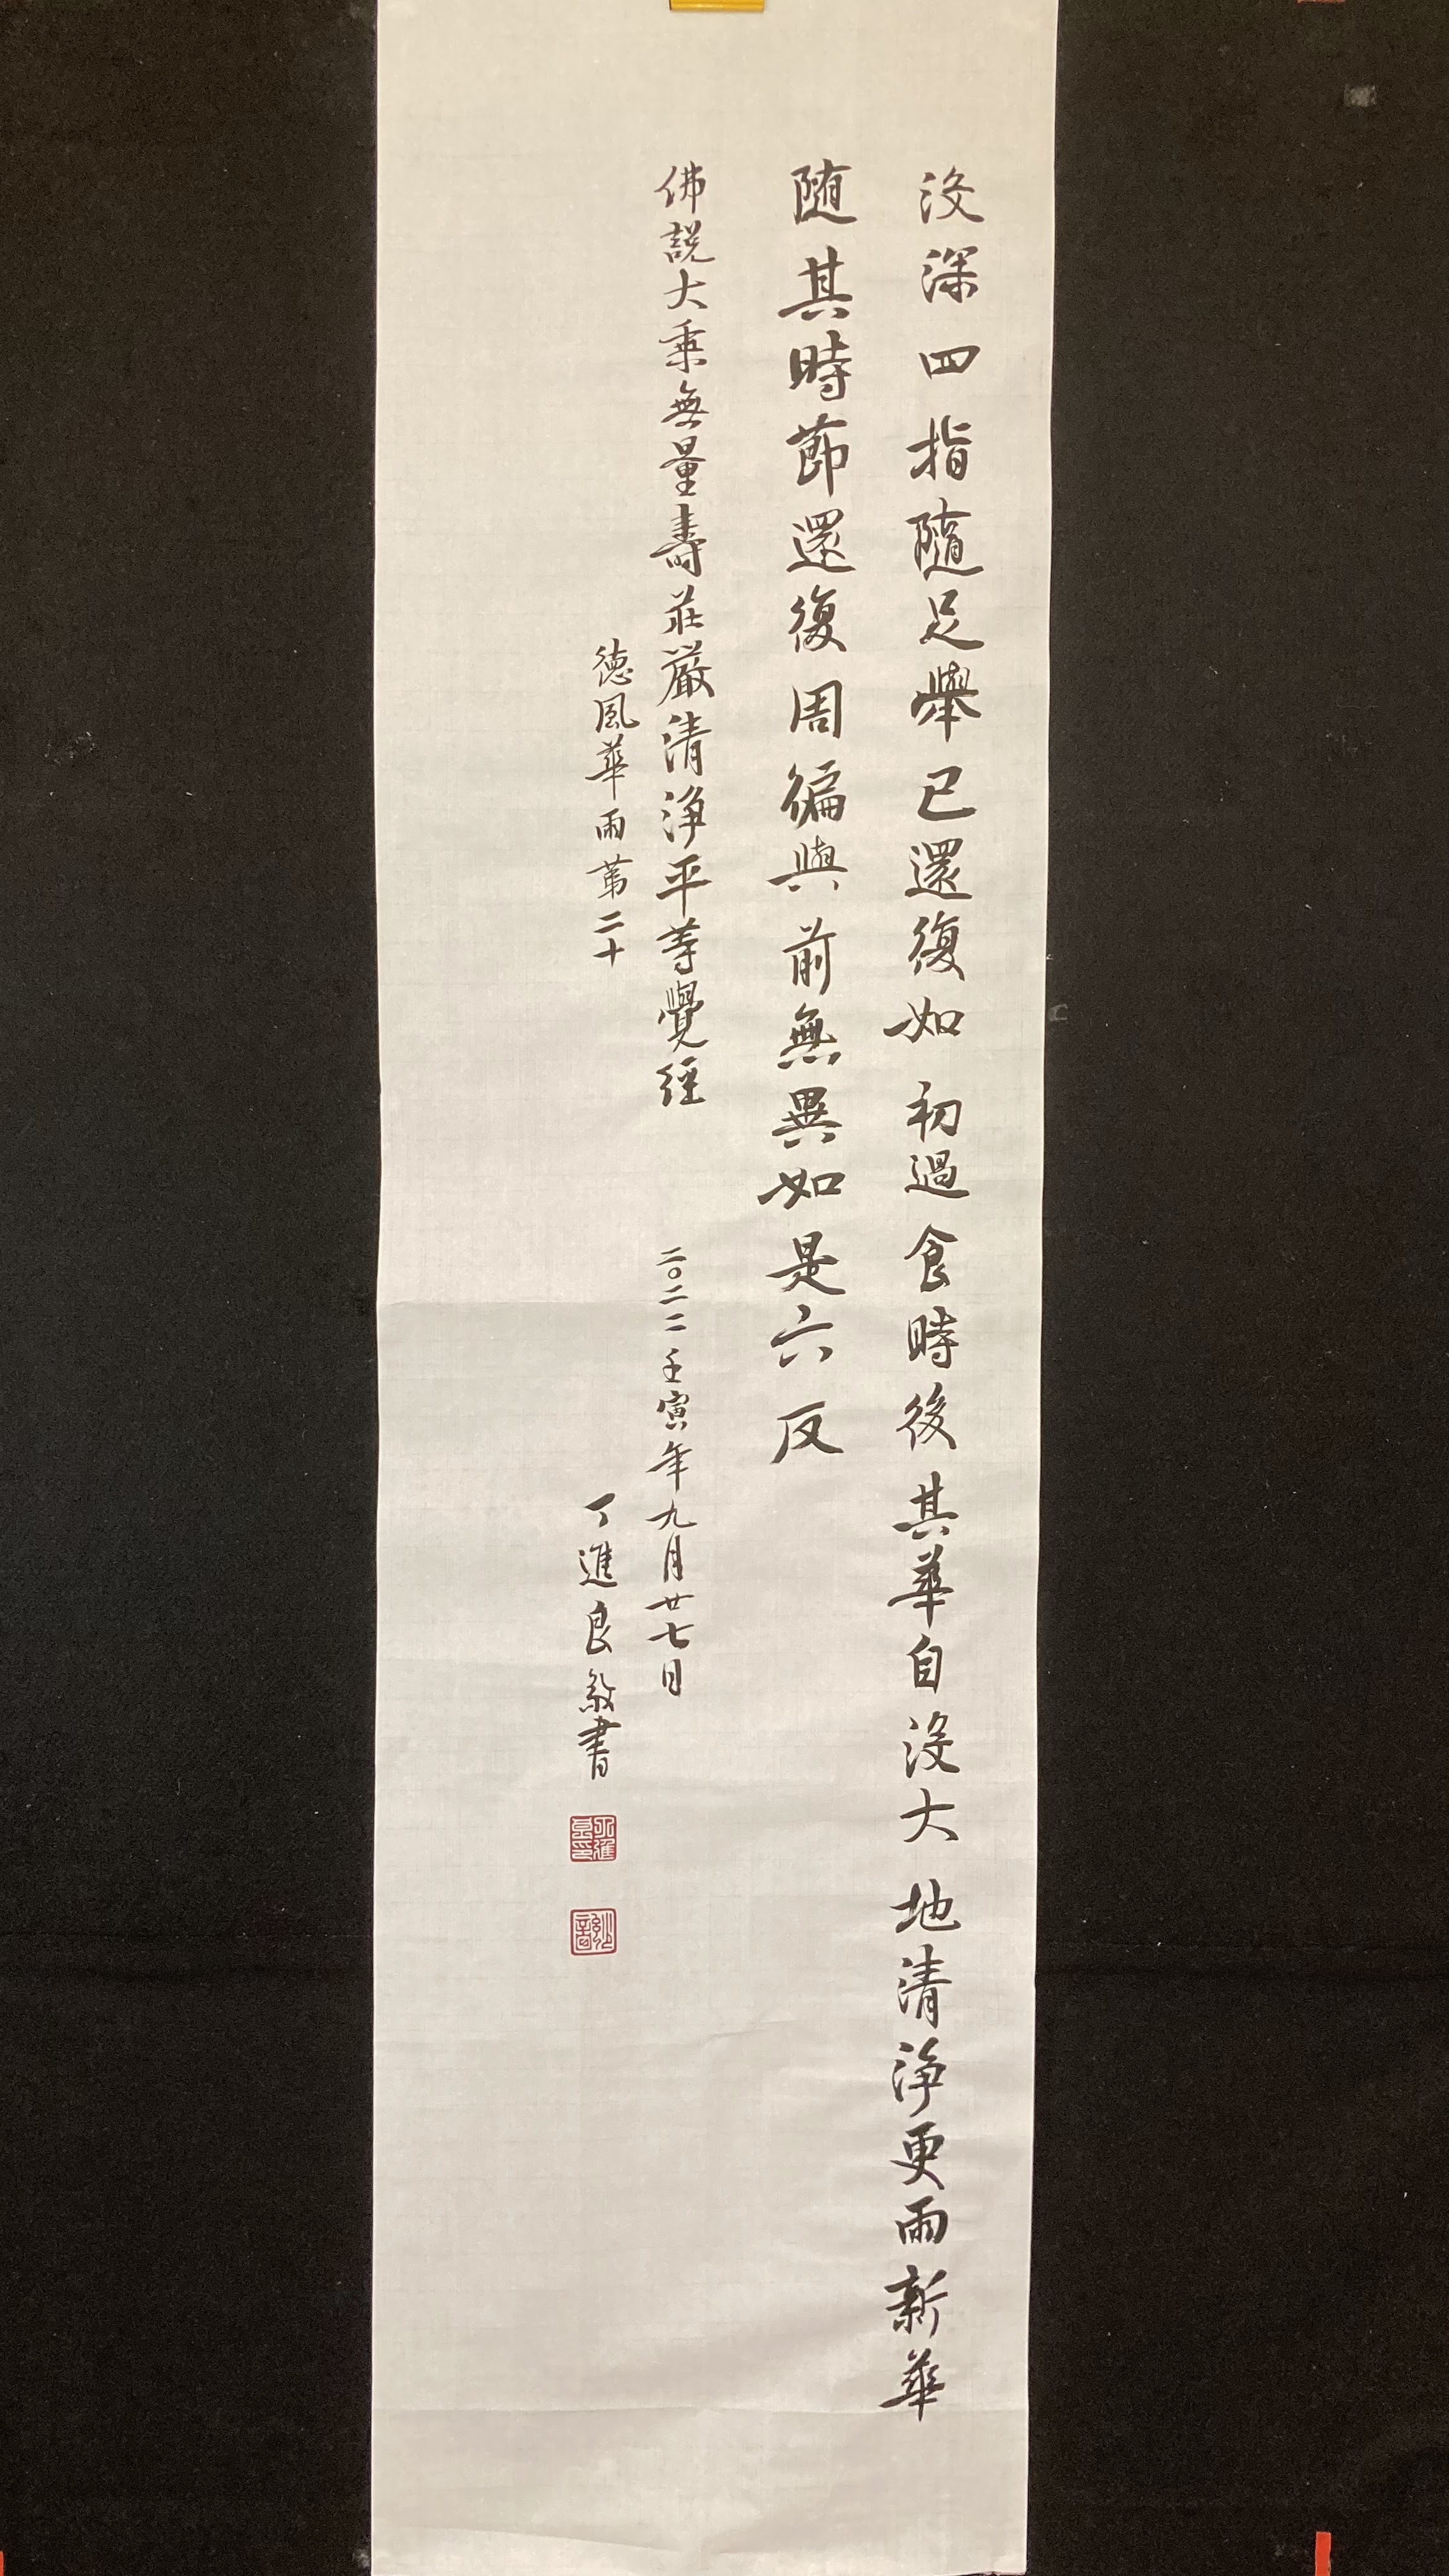 没深四指隨足舉已還復如初過食時後其華自没大地清淨更雨新華
隨其時節還復周徧與前無異如是六反
佛説大乘無量壽莊嚴清淨平等覺經
德風華雨第二十
二〇二二壬寅年九月廿七日
丁進良敬書